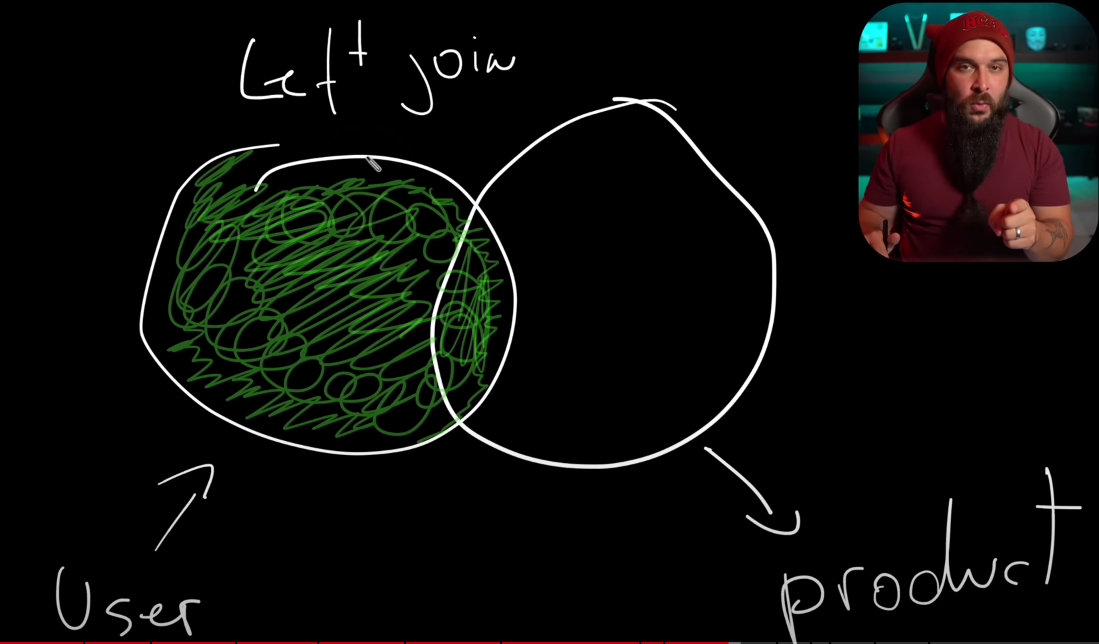 Left join
User
product